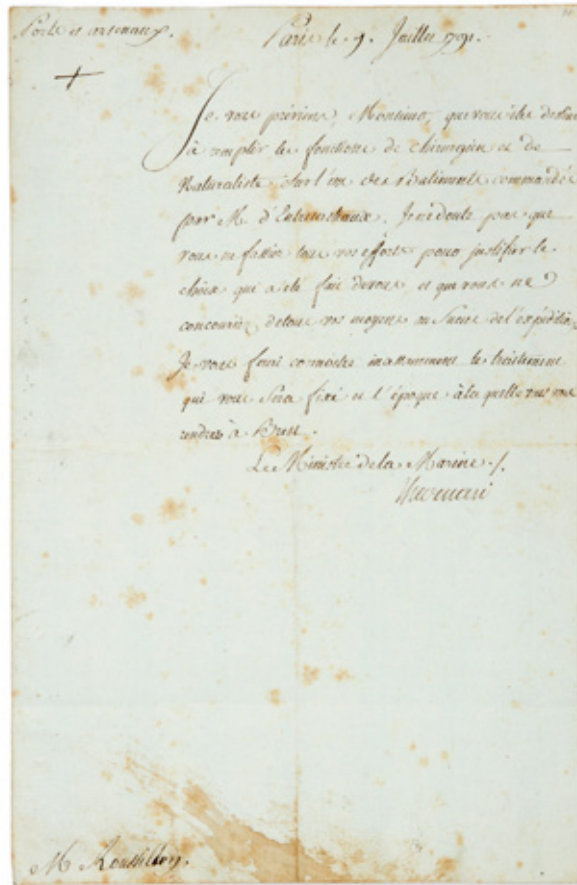 Ports et arsenaux.
Paris le 9. Juillet 1791.
Je vous préviens, Monsieur, que vous êtes destiné
à remplir les fonctions de chirurgien et de
Naturaliste sur l'un des Batiments commandés
par M. d'Entrecasteaux. Je ne doute pas que
vous ne fassiez tous vos efforts pour justifier le
choix qui a été fait de vous et que vous ne
concouriez de tous vos moyens au Succès de l'expédition.
Je vous ferai connoitre incessamment le traitement
qui vous Sera fixé et l'époque à laquelle vous vous
rendrez à Brest.
Le Ministre de la Marine /.
Thevenard
M. Roussillon.